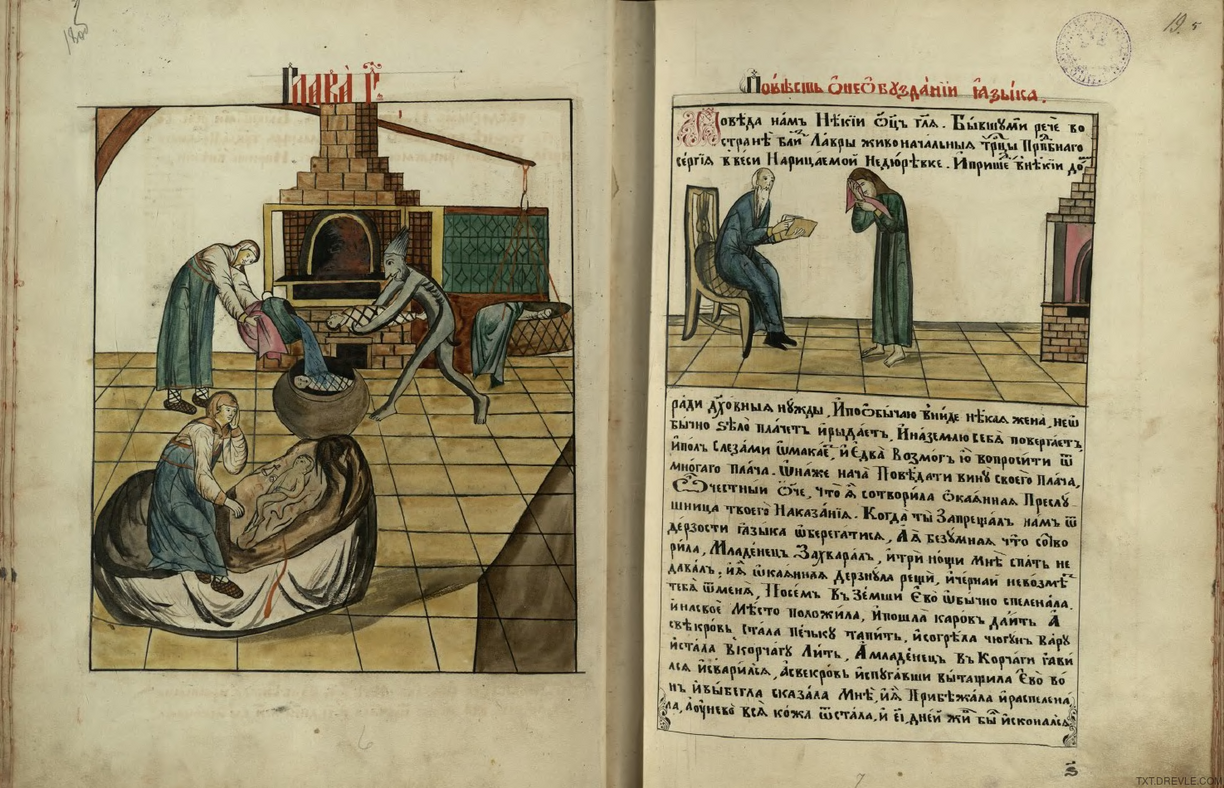 Глава Г҃
19.
Повѣсть ѽ неѽбузданїи ꙗзыка.
Повѣда намъ Нѣкїи Ѽц҃ъ гл҃я. Бывшу ми рече во
странѣ близ Лавры живоначальныя Трⷪ҇цы Прпⷣбнаго
сергїя в веси Нарицаемой Недюрѣвке. И пришеⷣ в нѣкїи доⷨ
ради дх҃овныя нужды, И по ѽбычаю вниде нѣкая жена, неѿ
бычно ѕѣло плачетъ и рыдаетъ, И на землю себѧ повергаетъ
и полъ слезами ѡмакаеⷮ, и едва возмогъ ю вопросити ѿ
многаго плача. Ѡна же нача Повѣдати вину своего плача,
Ѽ честныи ѽче, что ꙗ сотворила ѽкаянная Преслу
шница твоего Наказанїя. Когда ты Запрещалъ намъ ѿ
дерзости ꙗзыка ѡберегатися, А ꙗ безумная что сотво
рила, Младенецъ Захваралъ, и три нощи мнѣ спать не
давалъ, и ꙗ ѡкаянная дерзнула рещи, и чернаи невозмѣ
тебя ѿ меня, Посемъ Въ Земши Ево ѡбычно спеленала.
и на свое мѣсто положила, и пошла каровъ даить А
свѣкровь стала печьку тапить, и согрѣла чюгунъ вару
и стала в корчагу лить, А младенецъ въ корчаги ꙗви
лся и сварился, а свекровь испугавши вытащила ево во
нъ и выбегла сказала мнѣ, и ꙗ Прибѣжала и распелена
ла, вся кожа ѿстала, и дней живъ бы и скончался
TXT.DREVLE.COM